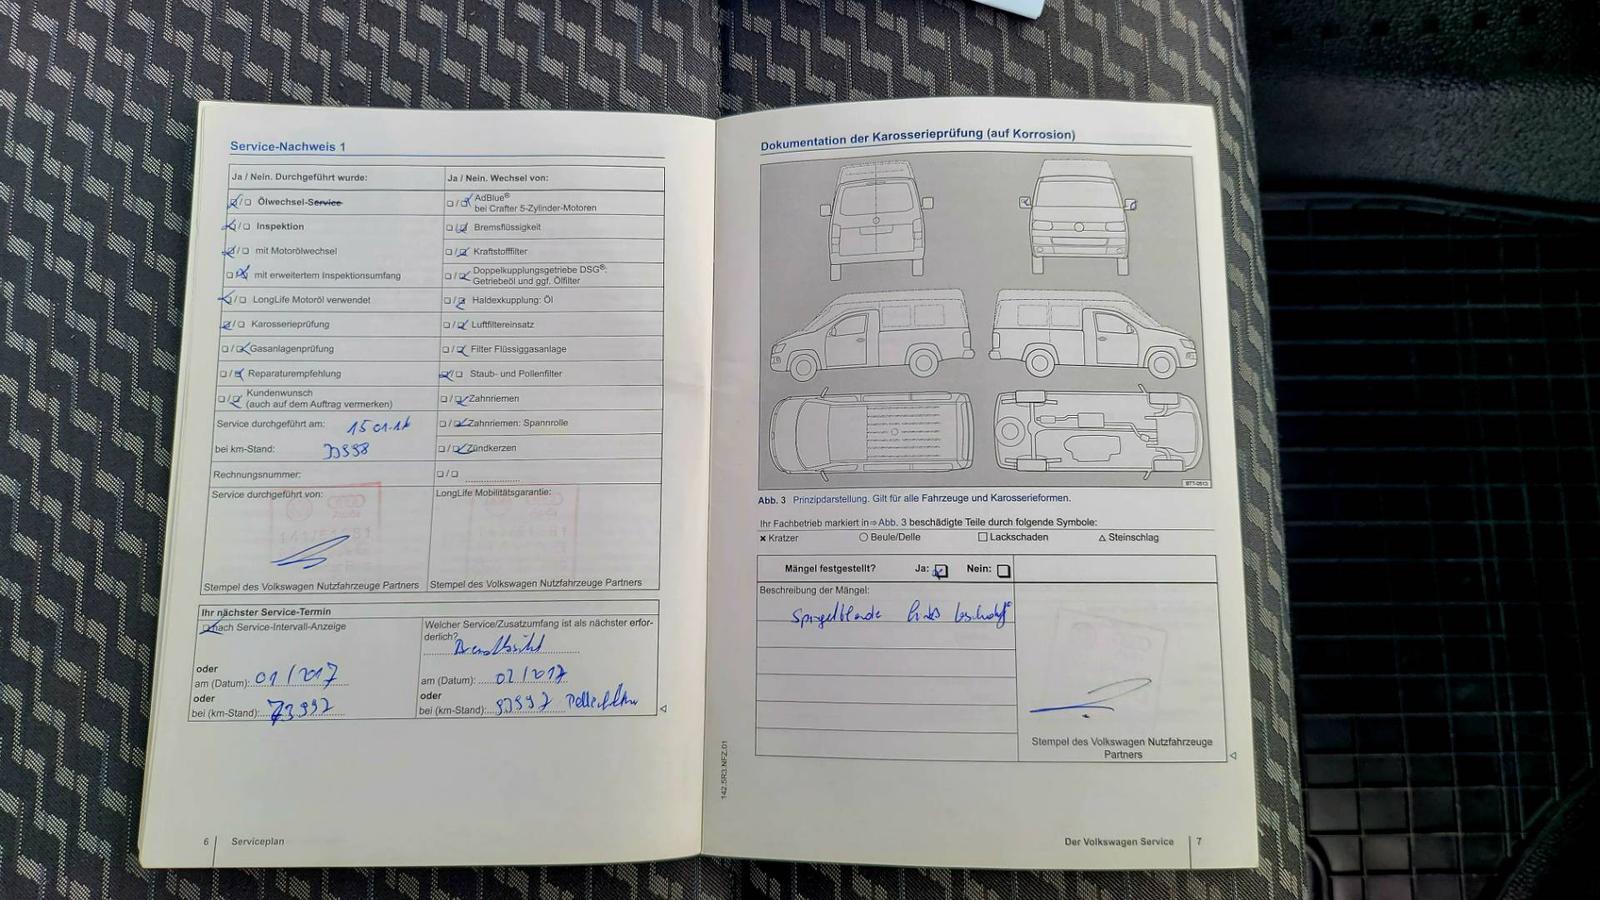 Service-Nachweis 1
Ja / Nein. Durchgeführt wurde:
Ölwechsel-Service
Inspektion
mit Motorölwechsel
mit erweitertem Inspektionsumfang
LongLife Motoröl verwendet
Karosserieprüfung
Gasanlagenprüfung
Reparaturempfehlung
Kundenwunsch
(auch auf dem Auftrag vermerken)
Service durchgeführt am:
bei km-Stand:
Rechnungsnummer:
Service durchgeführt von:
Stempel des Volkswagen Nutzfahrzeuge Partners
Ja / Nein. Wechsel von:
AdBlue®
bei Crafter 5-Zylinder-Motoren
Bremsflüssigkeit
Kraftstofffilter
Doppelkupplungsgetriebe DSG®:
Getriebeöl und ggf. Ölfilter
Haldexkupplung: Öl
Luftfiltereinsatz
Filter Flüssiggasanlage
Staub- und Pollenfilter
Zahnriemen
Zahnriemen: Spannrolle
Zündkerzen
LongLife Mobilitätsgarantie:
Stempel des Volkswagen Nutzfahrzeuge Partners
Ihr nächster Service-Termin
nach Service-Intervall-Anzeige
oder
am (Datum): 01/2017
oder
bei (km-Stand): 73997
Welcher Service/Zusatzumfang ist als nächster erfor-
derlich?
am (Datum): 02/2017
oder
bei (km-Stand): 93997
6 Serviceplan
Dokumentation der Karosserieprüfung (auf Korrosion)
BTT-0513
Abb. 3 Prinzipdarstellung. Gilt für alle Fahrzeuge und Karosserieformen.
Ihr Fachbetrieb markiert in ⇒ Abb. 3 beschädigte Teile durch folgende Symbole:
× Kratzer ○ Beule/Delle □ Lackschaden △ Steinschlag
Mängel festgestellt? Ja: Nein:
Beschreibung der Mängel:
Spiegelblende links
Stempel des Volkswagen Nutzfahrzeuge
Partners
142.5R3.NFZ.01
Der Volkswagen Service 7